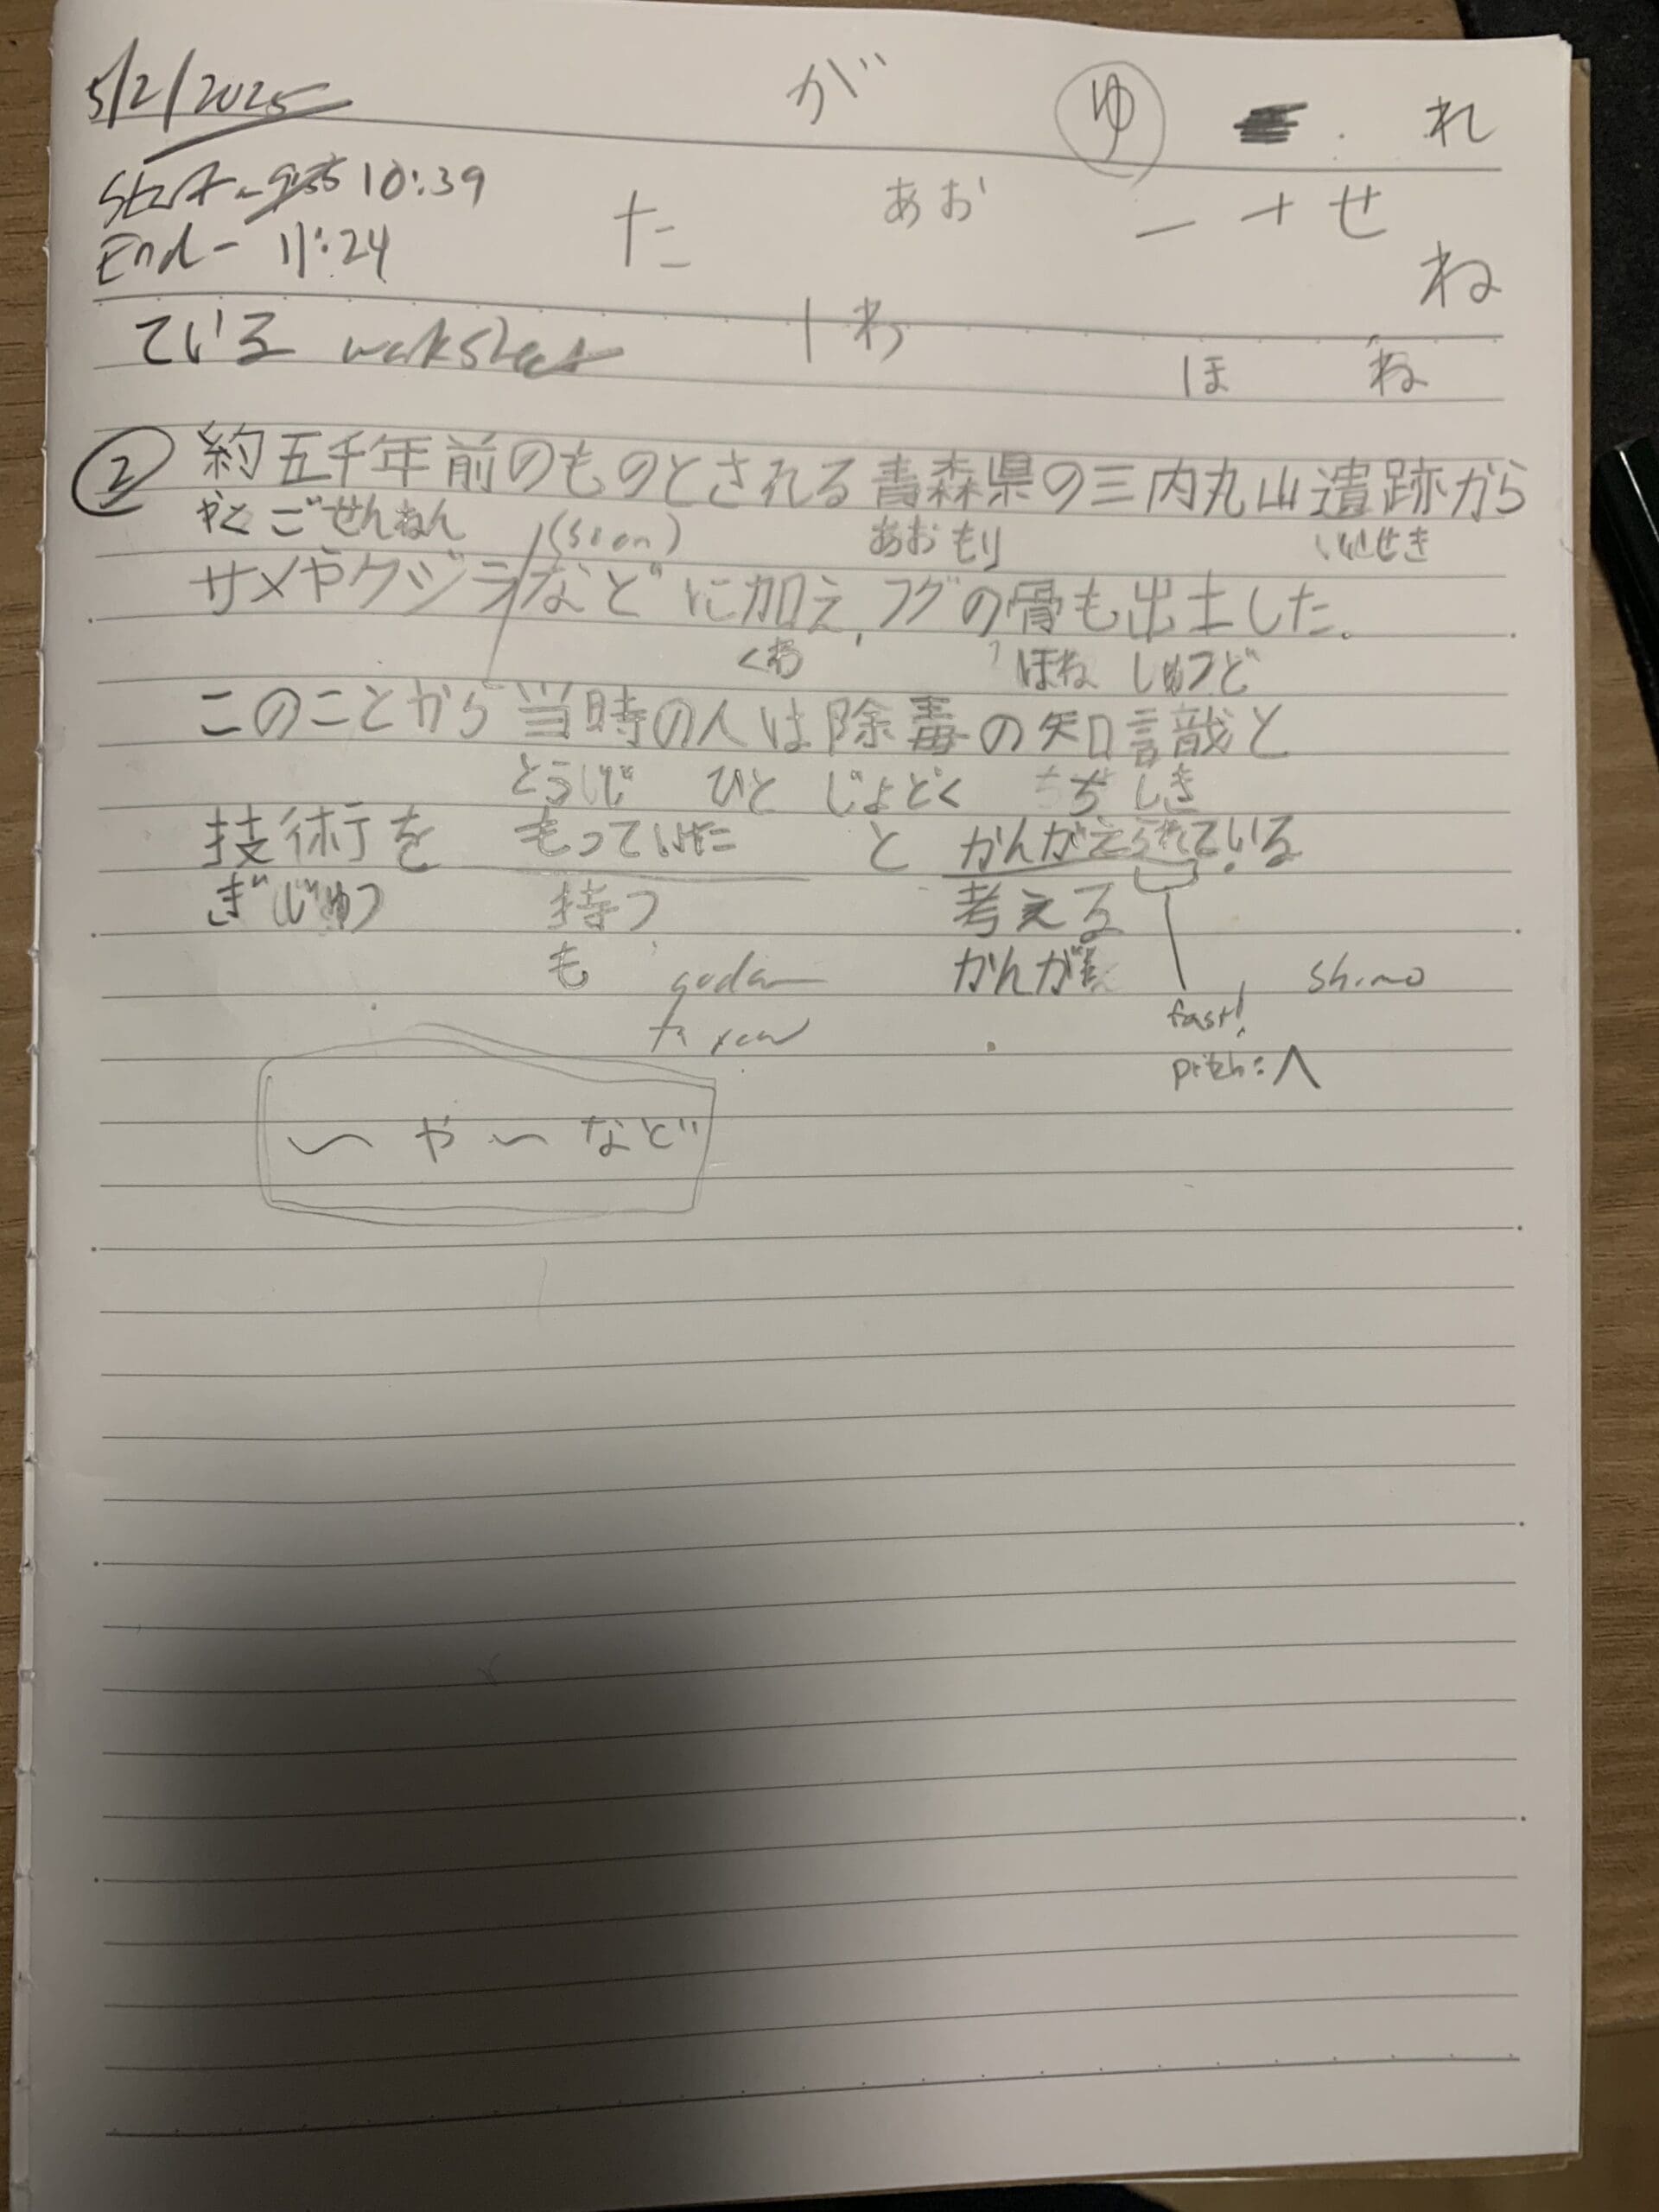 5/2/2025
が ゆ れ
Start - 10:39
た あお 一 ナ せ
End - 11:24
ね
ている worksheet
| わ
ほ ね
② 約五千年前のものとされる青森県の三内丸山遺跡から
やく ごせんねん あおもり いせき
サメやクジラなどに加え,フグの骨も出土した。
くわ ほね しゅつど
このことから当時の人は除毒の知識と
とうじ ひと じょどく ちしき
技術を もっていた と かんがえられている
ぎじゅつ 持つ 考える
も godan かんが
fast!
pitch: ∧
〜 や 〜 など